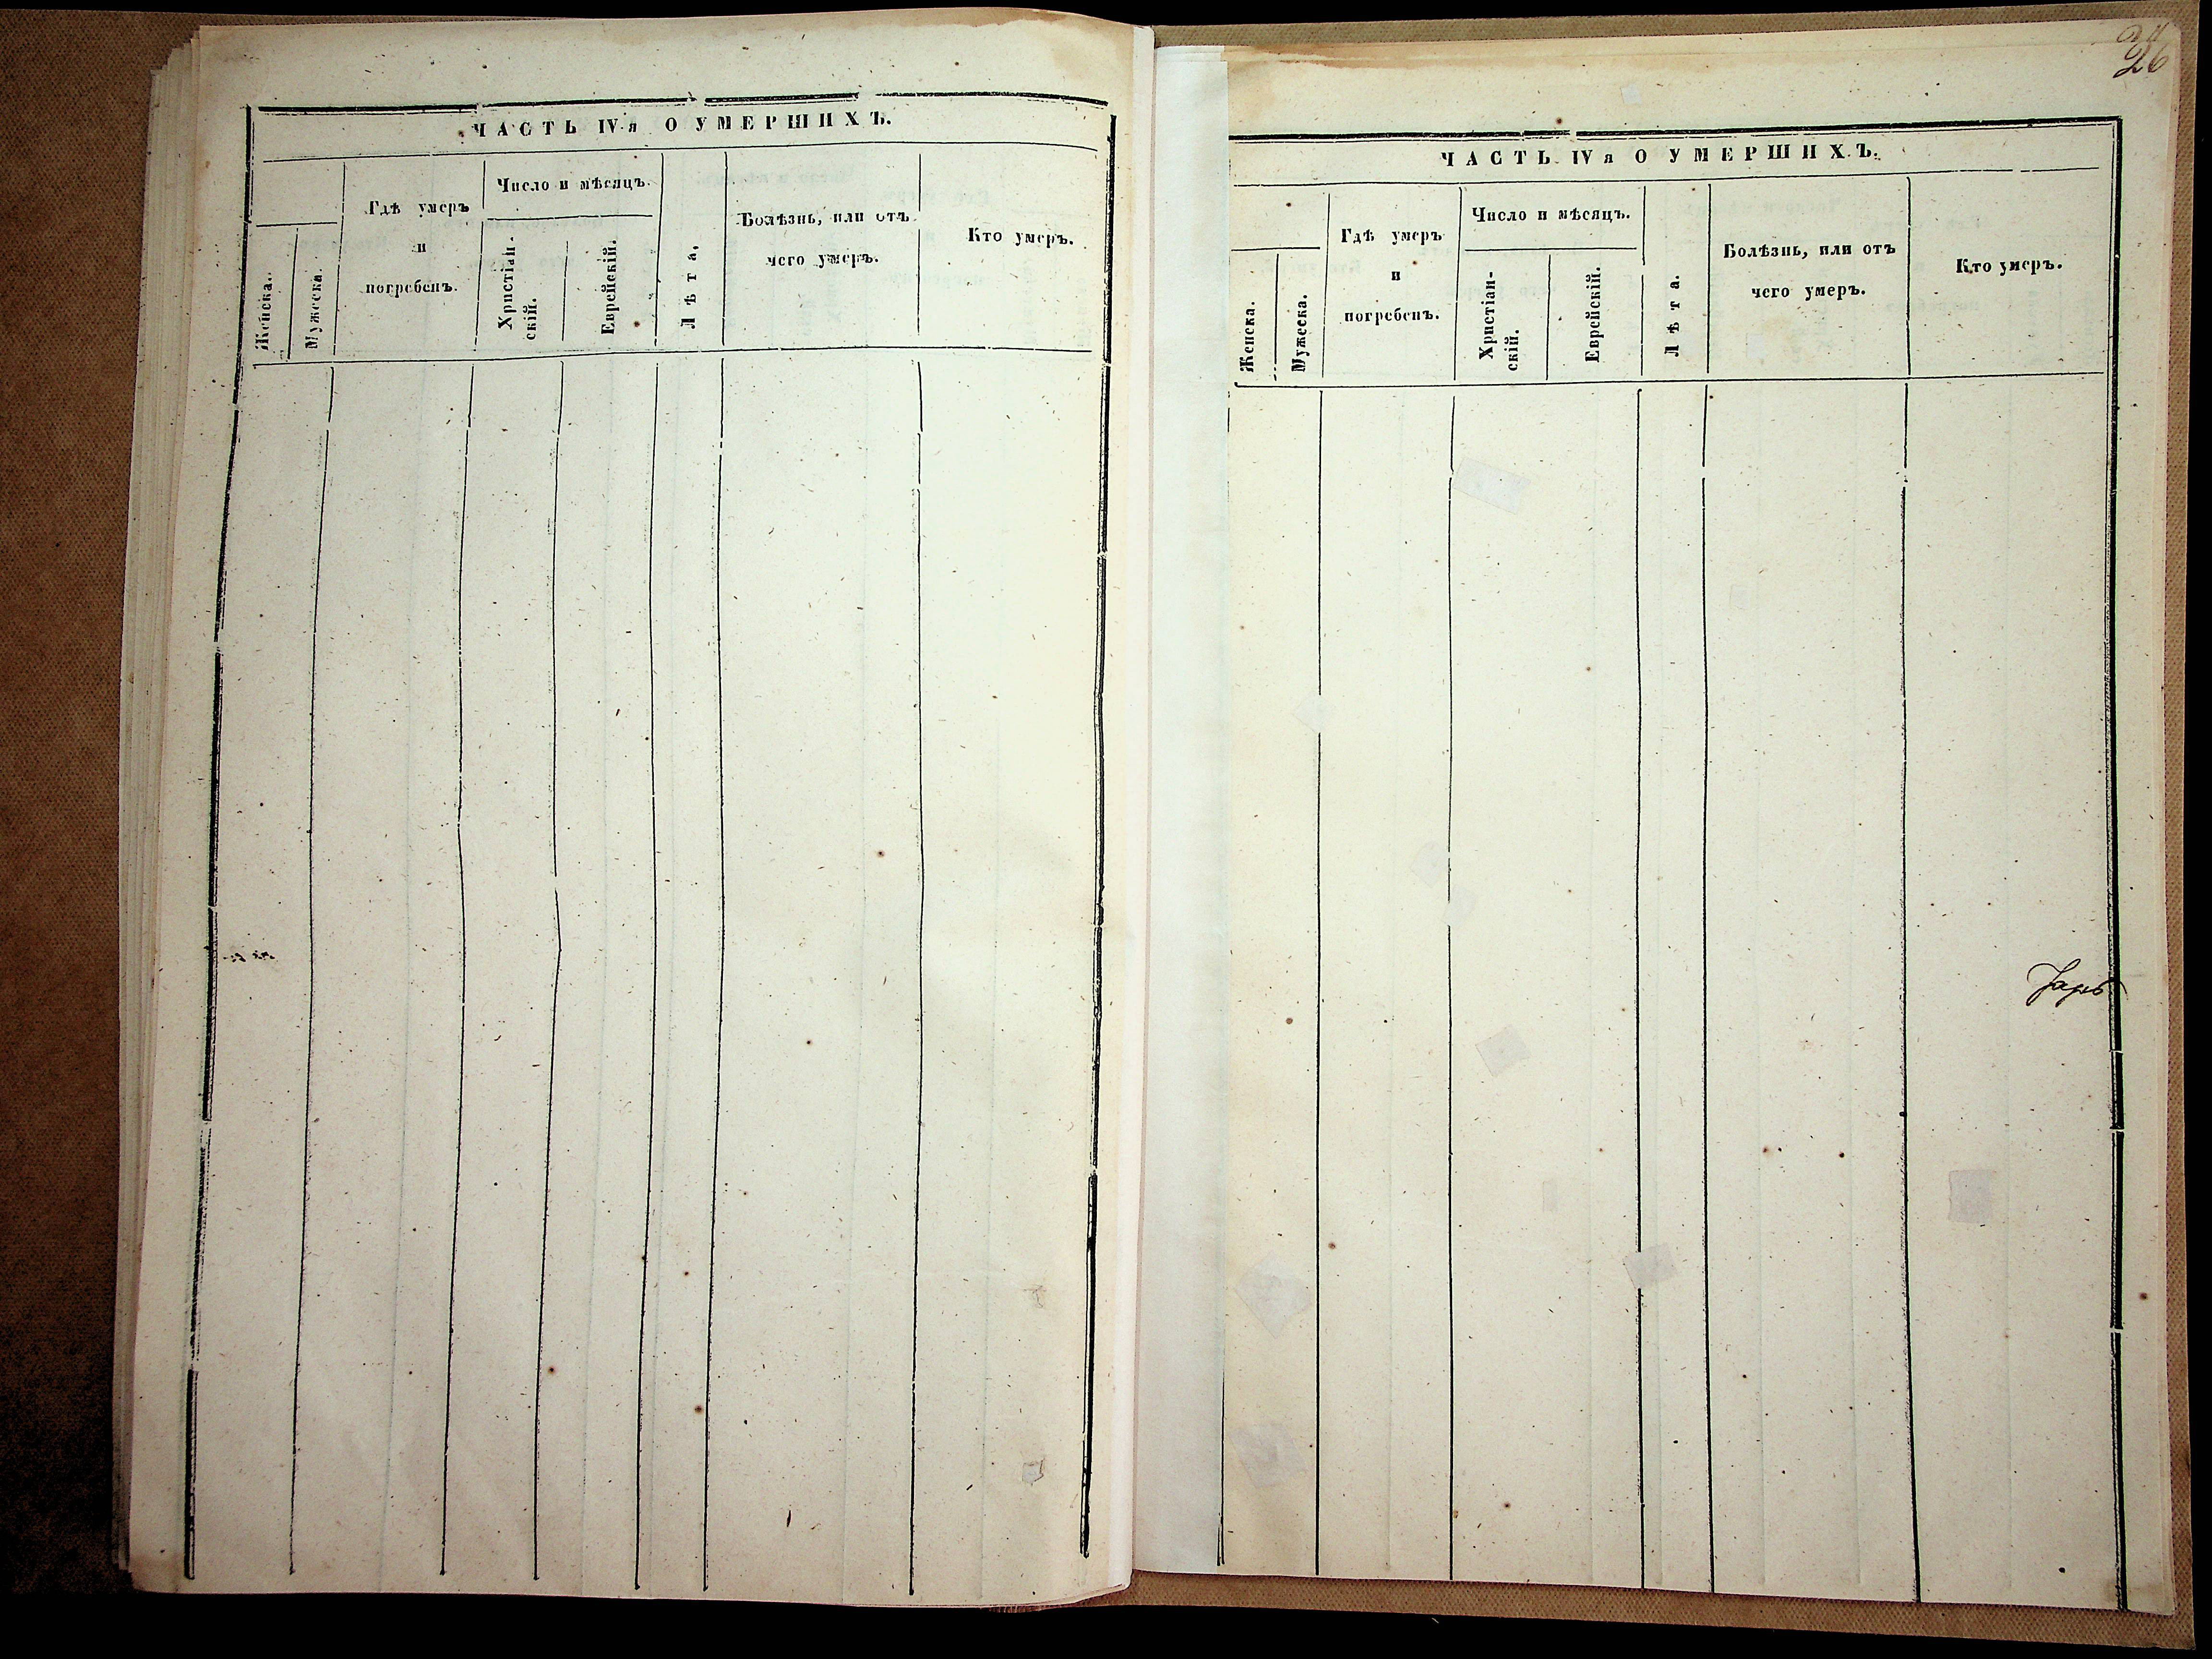 ЧАСТЬ IV я О УМЕРШИХЪ.
Женска.
Мужеска.
Гдѣ умеръ
и
погребенъ.
Число и мѣсяцъ.
Христіан-
скій.
Еврейскій.
Лѣта.
Болѣзнь, или отъ
чего умеръ.
Кто умеръ.
26
ЧАСТЬ IV я О УМЕРШИХЪ.
Женска.
Мужеска.
Гдѣ умеръ
и
погребенъ.
Число и мѣсяцъ.
Христіан-
скій.
Еврейскій.
Лѣта.
Болѣзнь, или отъ
чего умеръ.
Кто умеръ.